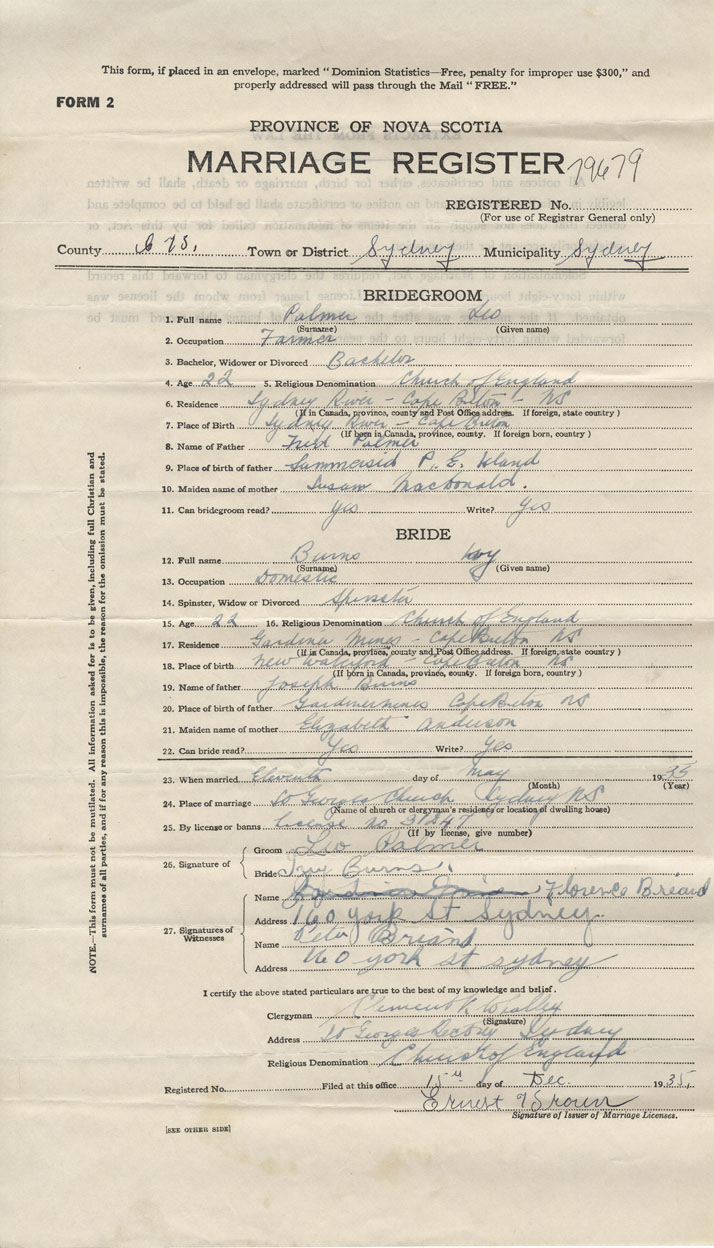 This form, if placed in an envelope, marked " Dominion Statistics—Free, penalty for improper use $300," and
properly addressed will pass through the Mail " FREE."
FORM 2
PROVINCE OF NOVA SCOTIA
MARRIAGE REGISTER 79679
REGISTERED No.
(For use of Registrar General only)
County Town or District Sydney Municipality Sydney
BRIDEGROOM
1. Full name Palmer Leo
(Surname) (Given name)
2. Occupation Farmer
3. Bachelor, Widower or Divorced Bachelor
4. Age 22 5. Religious Denomination Church of England
6. Residence Sydney River - Cape Breton - NS
(If in Canada, province, county and Post Office address. If foreign, state country )
7. Place of Birth Sydney River - Cape Breton
(If born in Canada, province, county. If foreign born, country )
8. Name of Father Fred Palmer
9. Place of birth of father Summersid P. E. Island
10. Maiden name of mother Susan MacDonald.
11. Can bridegroom read? yes Write? yes
BRIDE
12. Full name Burns Ivy
(Surname) (Given name)
13. Occupation Domestic
14. Spinster, Widow or Divorced Spinster
15. Age 22 16. Religious Denomination Church of England
17. Residence Gardiner Mines - Cape Breton NS
(If in Canada, province, county and Post Office address. If foreign, state country )
18. Place of birth New Waterford - Cape Breton NS
(If born in Canada, province, county. If foreign born, country )
19. Name of father Joseph Burns
20. Place of birth of father Gardiner mines Cape Breton NS
21. Maiden name of mother Elizabeth Anderson
22. Can bride read? Yes Write? Yes
23. When married Eleventh day of May 1935
(Month) (Year)
24. Place of marriage St Georges Church Sydney NS
(Name of church or clergyman's residence or location of dwelling house)
25. By license or banns License no 31347
(If by license, give number)
26. Signature of
Groom Leo Palmer
Bride Ivy Burns
27. Signatures of Witnesses
Name Florence Briand
Address 160 york St Sydney
Name Peter Briand
Address 160 york st sydney
I certify the above stated particulars are true to the best of my knowledge and belief.
Clergyman
(Signature)
Address St Georges Rectory Sydney
Religious Denomination Church of England
Registered No. Filed at this office 15th day of Dec. 1935,
Ernest Brown
Signature of Issuer of Marriage Licenses.
[SEE OTHER SIDE]
NOTE.—This form must not be mutilated. All information asked for is to be given, including full Christian and
surnames of all parties, and if for any reason this is impossible, the reason for the omission must be stated.